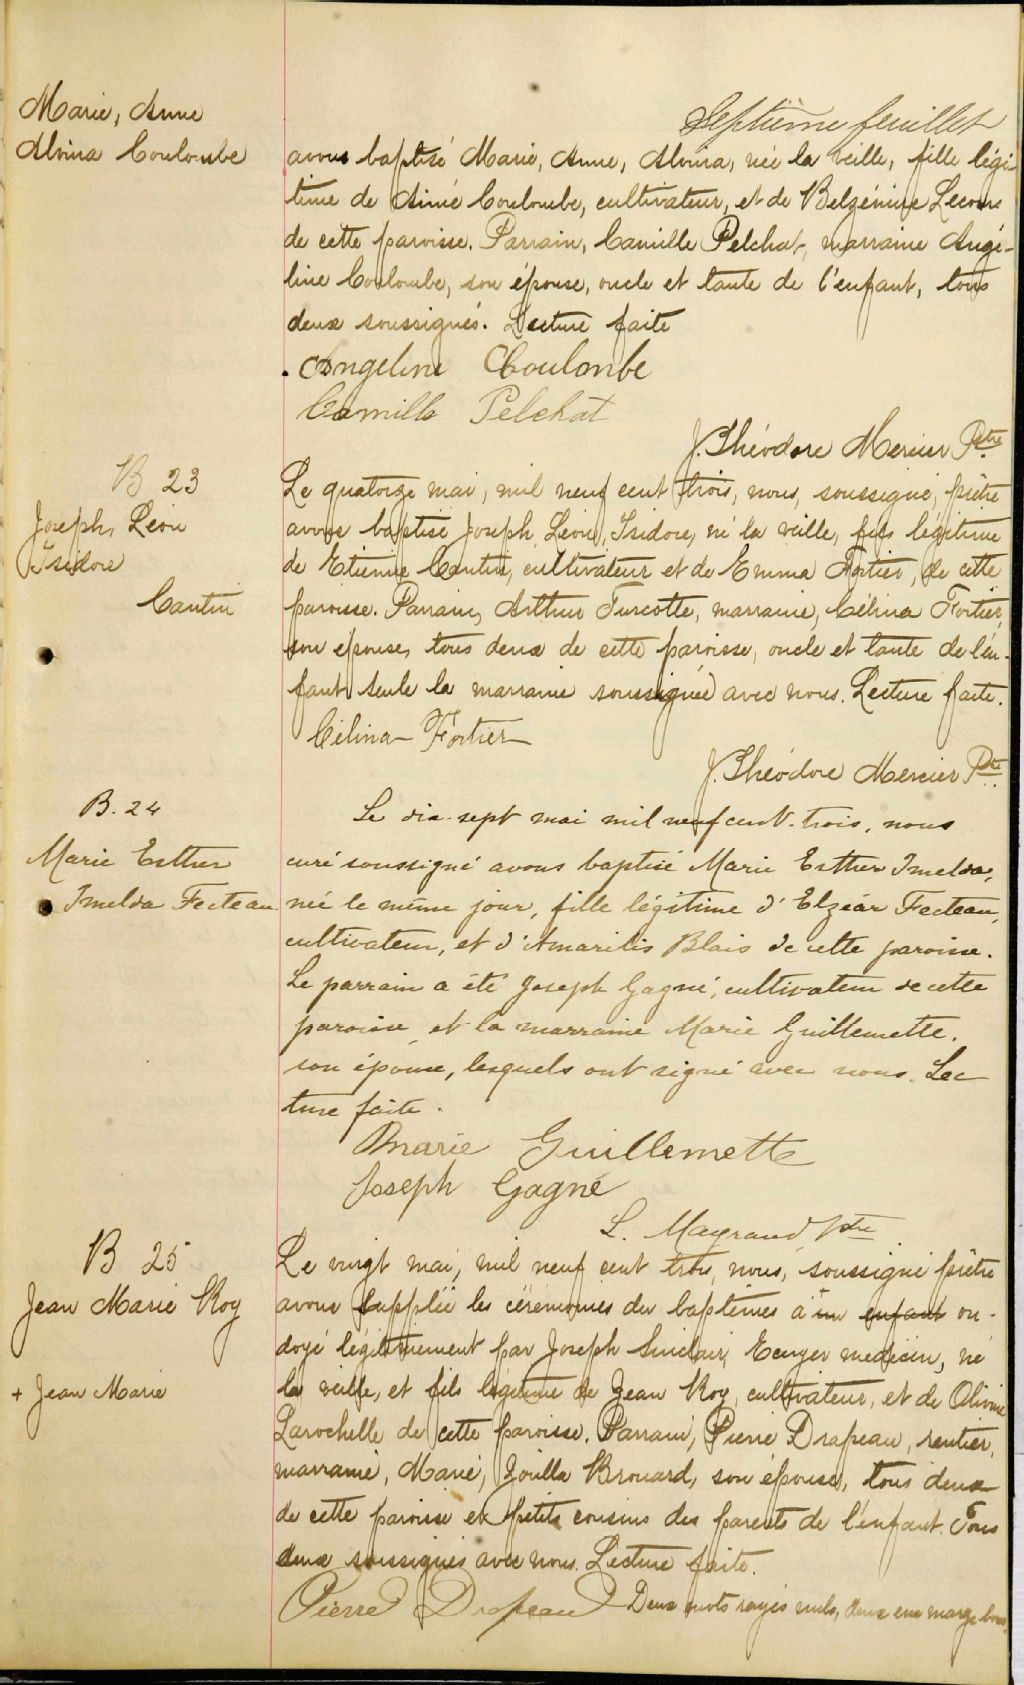 Septième feuillet
Marie, Anne
Alvina Coulombe
avons baptisé Marie, Anne, Alvina, née la veille, fille légi-
time de Aimé Coulombe, cultivateur, et de Belzémire Lecours
de cette paroisse. Parrain, Camille Pelchat, marraine Angé-
line Coulombe, son épouse, oncle et tante de l'enfant, tous
deux soussignés. Lecture faite
Angeline Coulombe
Camille Pelchat
J. Théodore Mercier Ptre
B 23
Joseph, Léon
Isidore
Cantin
Le quatorze mai, mil neuf cent trois, nous, soussigné, prêtre
avons baptisé Joseph, Léon, Isidore, né la veille, fils légitime
de Etienne Cantin, cultivateur et de Emma Fortier, de cette
paroisse. Parrain, Arthur Turcotte, marraine, Célina Fortier,
son épouse, tous deux de cette paroisse, oncle et tante de l'en-
fant. Seule la marraine soussignée avec nous. Lecture faite.
Célina Fortier
J. Théodore Mercier Ptre
B. 24
Marie Esther
Imelda Fecteau
Le dix-sept mai mil neuf cent-trois, nous
curé soussigné avons baptisé Marie Esther Imelda,
née le même jour, fille légitime d'Elzéar Fecteau,
cultivateur, et d'Amarilis Blais de cette paroisse.
Le parrain a été Joseph Gagné, cultivateur de cette
paroisse et la marraine Marie Guillemette,
son épouse, lesquels ont signé avec nous. Lec
ture faite.
Marie Guillemette
Joseph Gagné
L. Mayrand Ptre
B 25
Jean Marie Roy
+ Jean Marie
Le vingt mai, mil neuf cent trois, nous, soussigné prêtre
avons suppléé les cérémonies du baptêmes à + un enfant on-
doyé légitimement par Joseph Sinclair, Ecuyer médecin, né
la veille, et fils légitime de Jean Roy, cultivateur, et de Olivine
Larochelle de cette paroisse. Parrain, Pierre Drapeau, rentier,
marraine, Marie, Zoïlla Brouard, son épouse, tous deux
de cette paroisse et petits cousins des parents de l'enfant. Tous
deux soussignés avec nous. Lecture faite.
Pierre Drapeau Deux mots rayés nuls, deux en marge bons